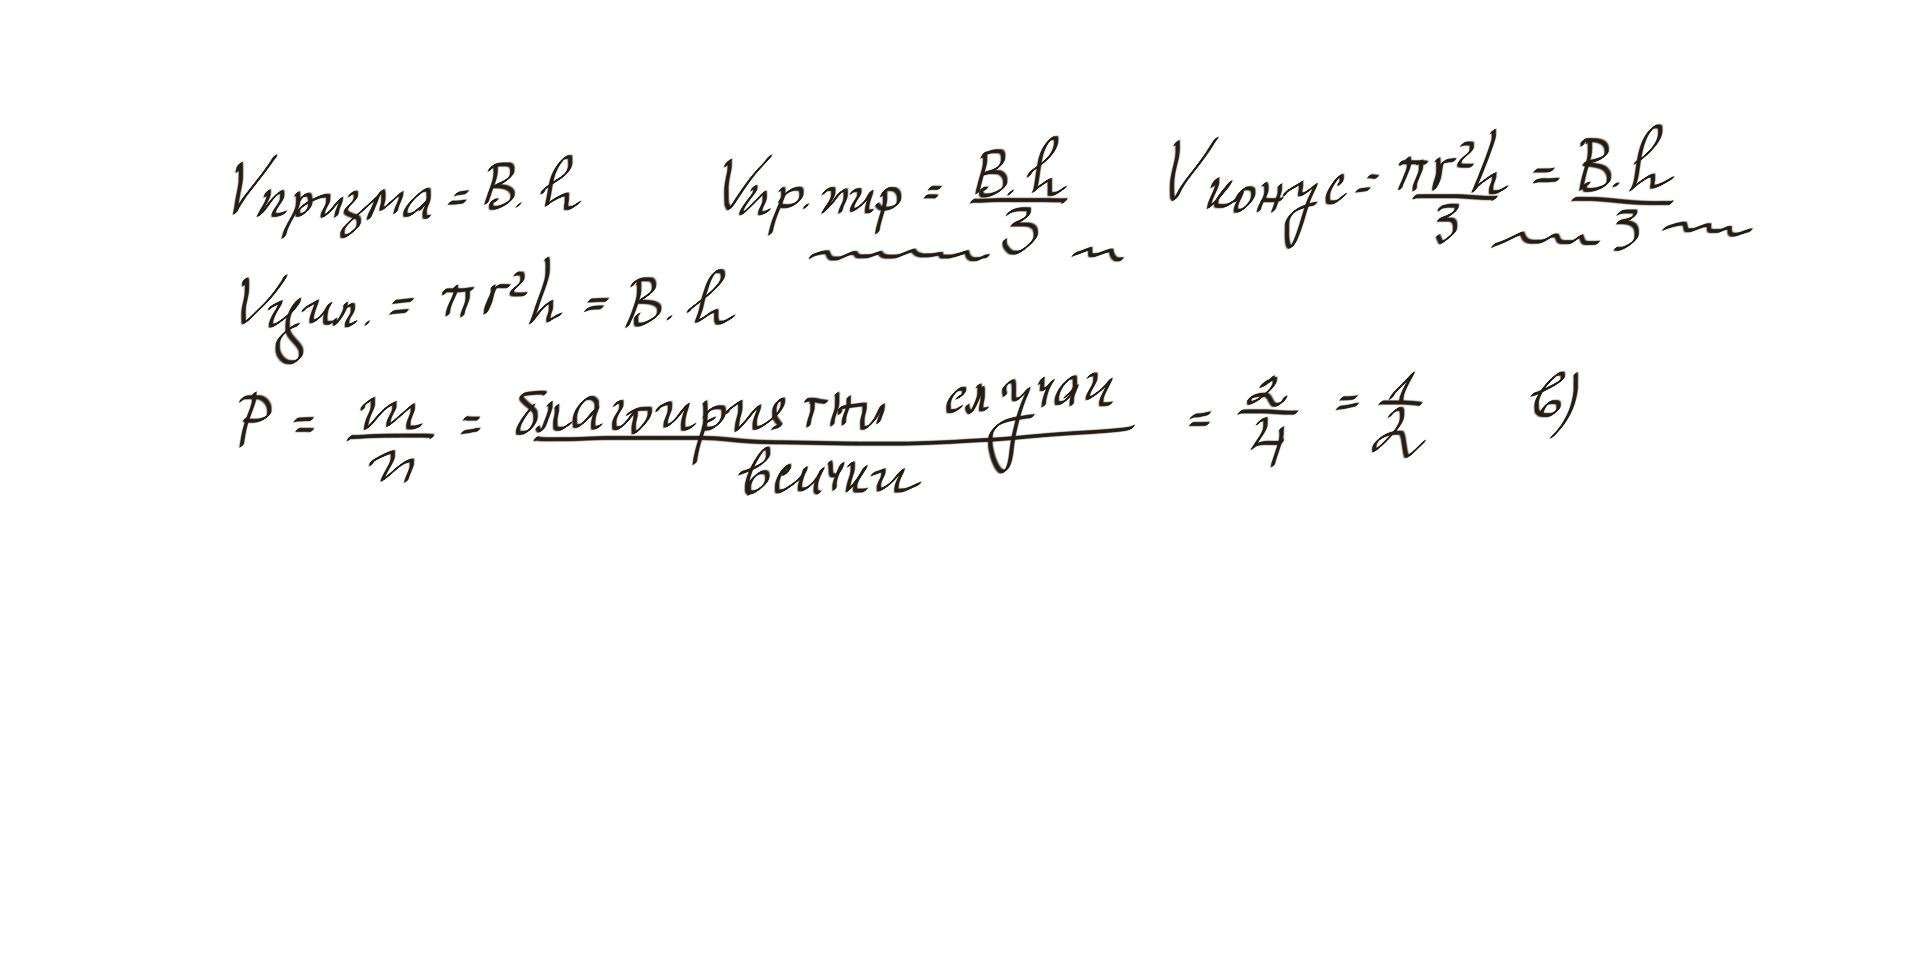 Vпризма = B.h Vпр.пир = B.h/3 Vконус = πr²h/3 = B.h/3
Vцил. = πr²h = B.h
P = m/n = благоприятни случаи/всички = 2/4 = 1/2 в)